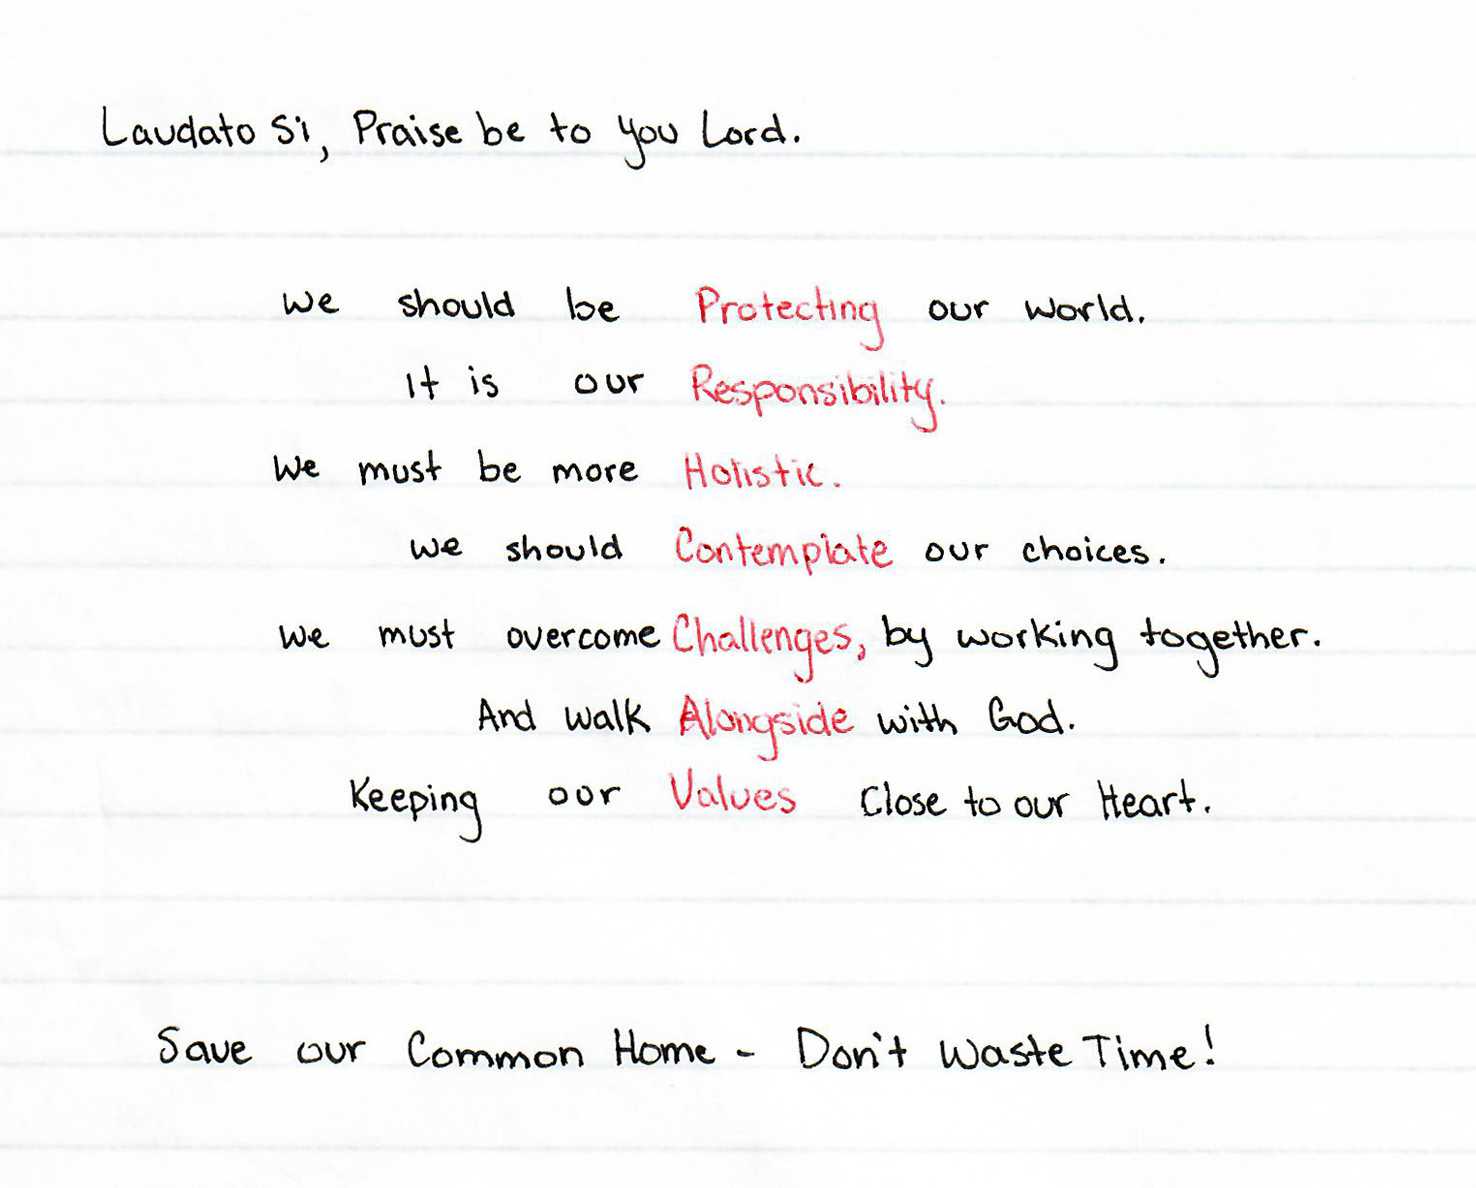 Laudato Si, Praise be to you Lord.
We should be Protecting our world.
It is our Responsibility.
We must be more Holistic.
We should Contemplate our choices.
We must overcome Challenges, by working together.
And walk Alongside with God.
Keeping our Values Close to our Heart.
Save our Common Home - Don't Waste Time!